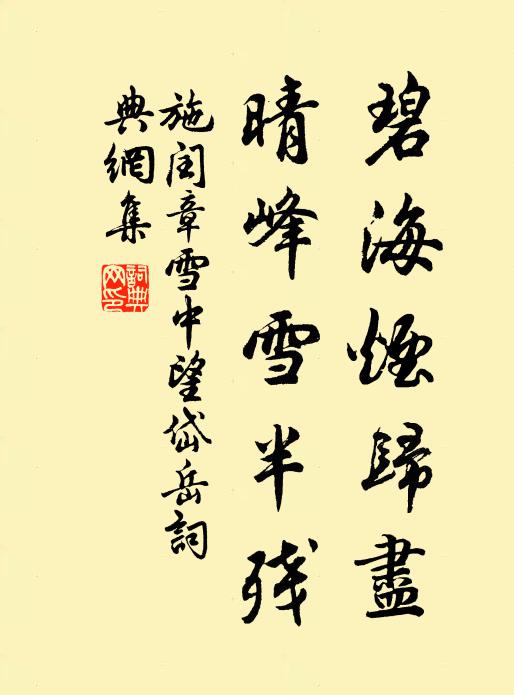 碧海煙歸盡
晴峰雪半残
施闰章雪中望岱岳詞
典網集
詞典
网印